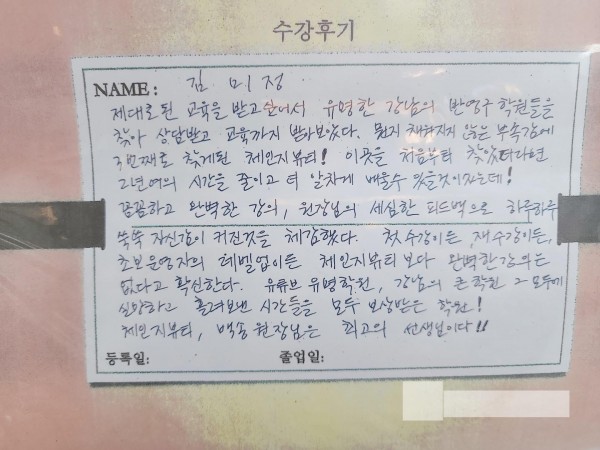 수강후기
NAME: 김미정
제대로된 교육을 받고싶어서 유명한 강남의 반영구 학원들을
찾아 상담받고 교육까지 받아보았다. 뭔지 채워지지 않는 부족감에
3번째로 찾게된 체인지뷰티! 이곳을 처음부터 찾았더라면
2년여의 시간을 줄이고 더 알차게 배울수 있을것이자는데!
꼼꼼하고 완벽한 강의, 원장님의 세심한 피드백으로 하루하루
쑥쑥 자신감이 커진것을 체감했다. 첫수강이든, 재수강이든,
초보운영자의 레벨업이든 체인지뷰티보다 완벽한강의는
없다고 확신한다. 유튜브 유명학원, 강남의 큰학원 그 모두에
실망하고 흘려보낸 시간들을 모두 보상받은 학원!
체인지뷰티, 백송 원장님은 최고의 선생님이다!!
등록일: 졸업일: